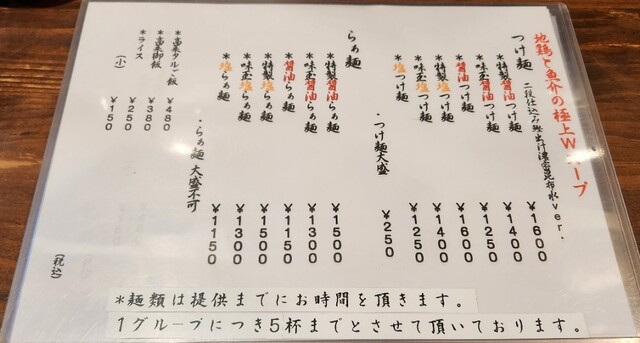 地鶏と魚介の極上Wスープ
つけ麺 二段仕込み 出汁 昆布水ver.
*特製醤油つけ麺 ¥1600
*味玉醤油つけ麺 ¥1400
*醤油つけ麺 ¥1250
*特製塩つけ麺 ¥1600
*味玉塩つけ麺 ¥1400
*塩つけ麺 ¥1250
・つけ麺大盛 ¥250
らぁ麺
*特製醤油らぁ麺 ¥1500
*味玉醤油らぁ麺 ¥1300
*醤油らぁ麺 ¥1150
*特製塩らぁ麺 ¥1500
*味玉塩らぁ麺 ¥1300
*塩らぁ麺 ¥1150
・らぁ麺 大盛不可
*高来タルご飯 ¥480
*高来御飯 ¥380
*ライス ¥250
(小) ¥150
(税込)
*麺類は提供までにお時間を頂きます。
1グループにつき5杯までとさせて頂いております。